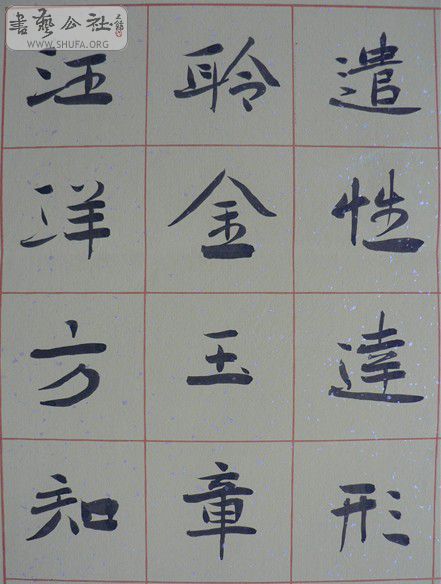 遣性達形
聆金玉章
汪洋方知
書藝公社
WWW.SHUFA.ORG